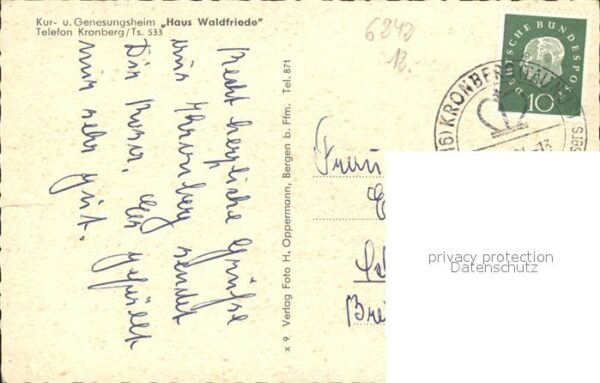 Kur- u. Genesungsheim „Haus Waldfriede"
Telefon Kronberg/Ts. 533
6242
12.
Recht herzliche Grüße
aus Kronberg sendet
Dir Rosa. Es gefällt
mir sehr gut.
x 9 Verlag Foto H. Oppermann, Bergen b. Ffm. Tel. 871
DEUTSCHE BUNDESPOST
10
16) KRONBERG (TAUNUS
Frau
privacy protection
Datenschutz